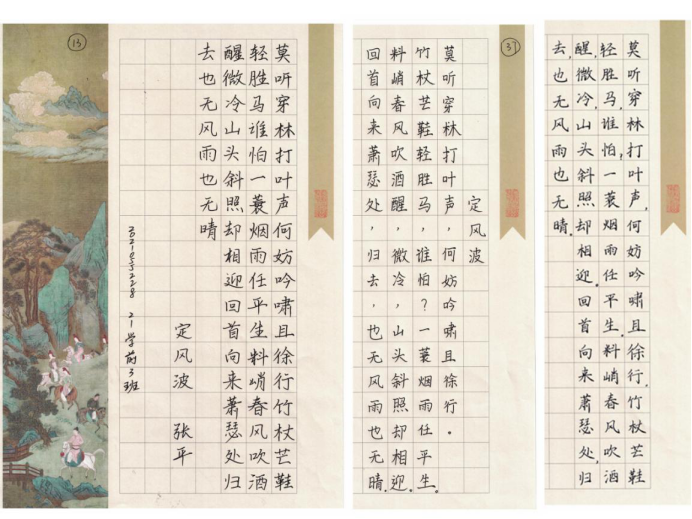 13
莫听穿林打叶声何妨吟啸且徐行竹杖芒鞋
轻胜马谁怕一蓑烟雨任平生料峭春风吹酒
醒微冷山头斜照却相迎回首向来萧瑟处归
去也无风雨也无晴
定风波 张平
21学前3班
31
定风波
莫听穿林打叶声，何妨吟啸且徐行。
竹杖芒鞋轻胜马，谁怕？一蓑烟雨任平生。
料峭春风吹酒醒，微冷，山头斜照却相迎。
回首向来萧瑟处，归去，也无风雨也无晴。
莫听穿林打叶声，何妨吟啸且徐行，竹杖芒鞋
轻胜马，谁怕，一蓑烟雨任平生，料峭春风吹酒
醒，微冷，山头斜照却相迎，回首向来萧瑟处，归
去，也无风雨也无晴。